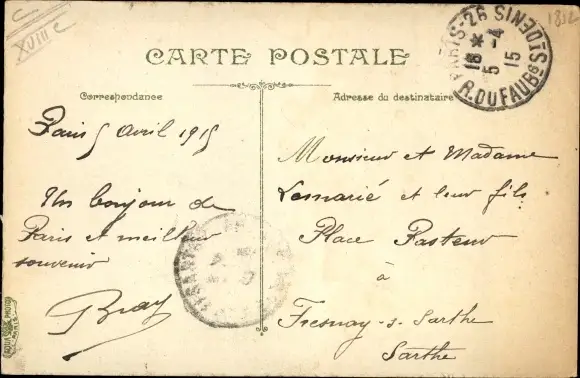 XVIII e
1812
CARTE POSTALE
Correspondance
Adresse du destinataire
PARIS-26 R. DU FAUBG ST DENIS
18 * 5-4 15
Paris 5 Avril 1915
Un bonjour de
Paris et meilleur
souvenir
Bray
Monsieur et Madame
Lemarié et leur fils
Place Pasteur
à
Fresnay-s-Sarthe
Sarthe